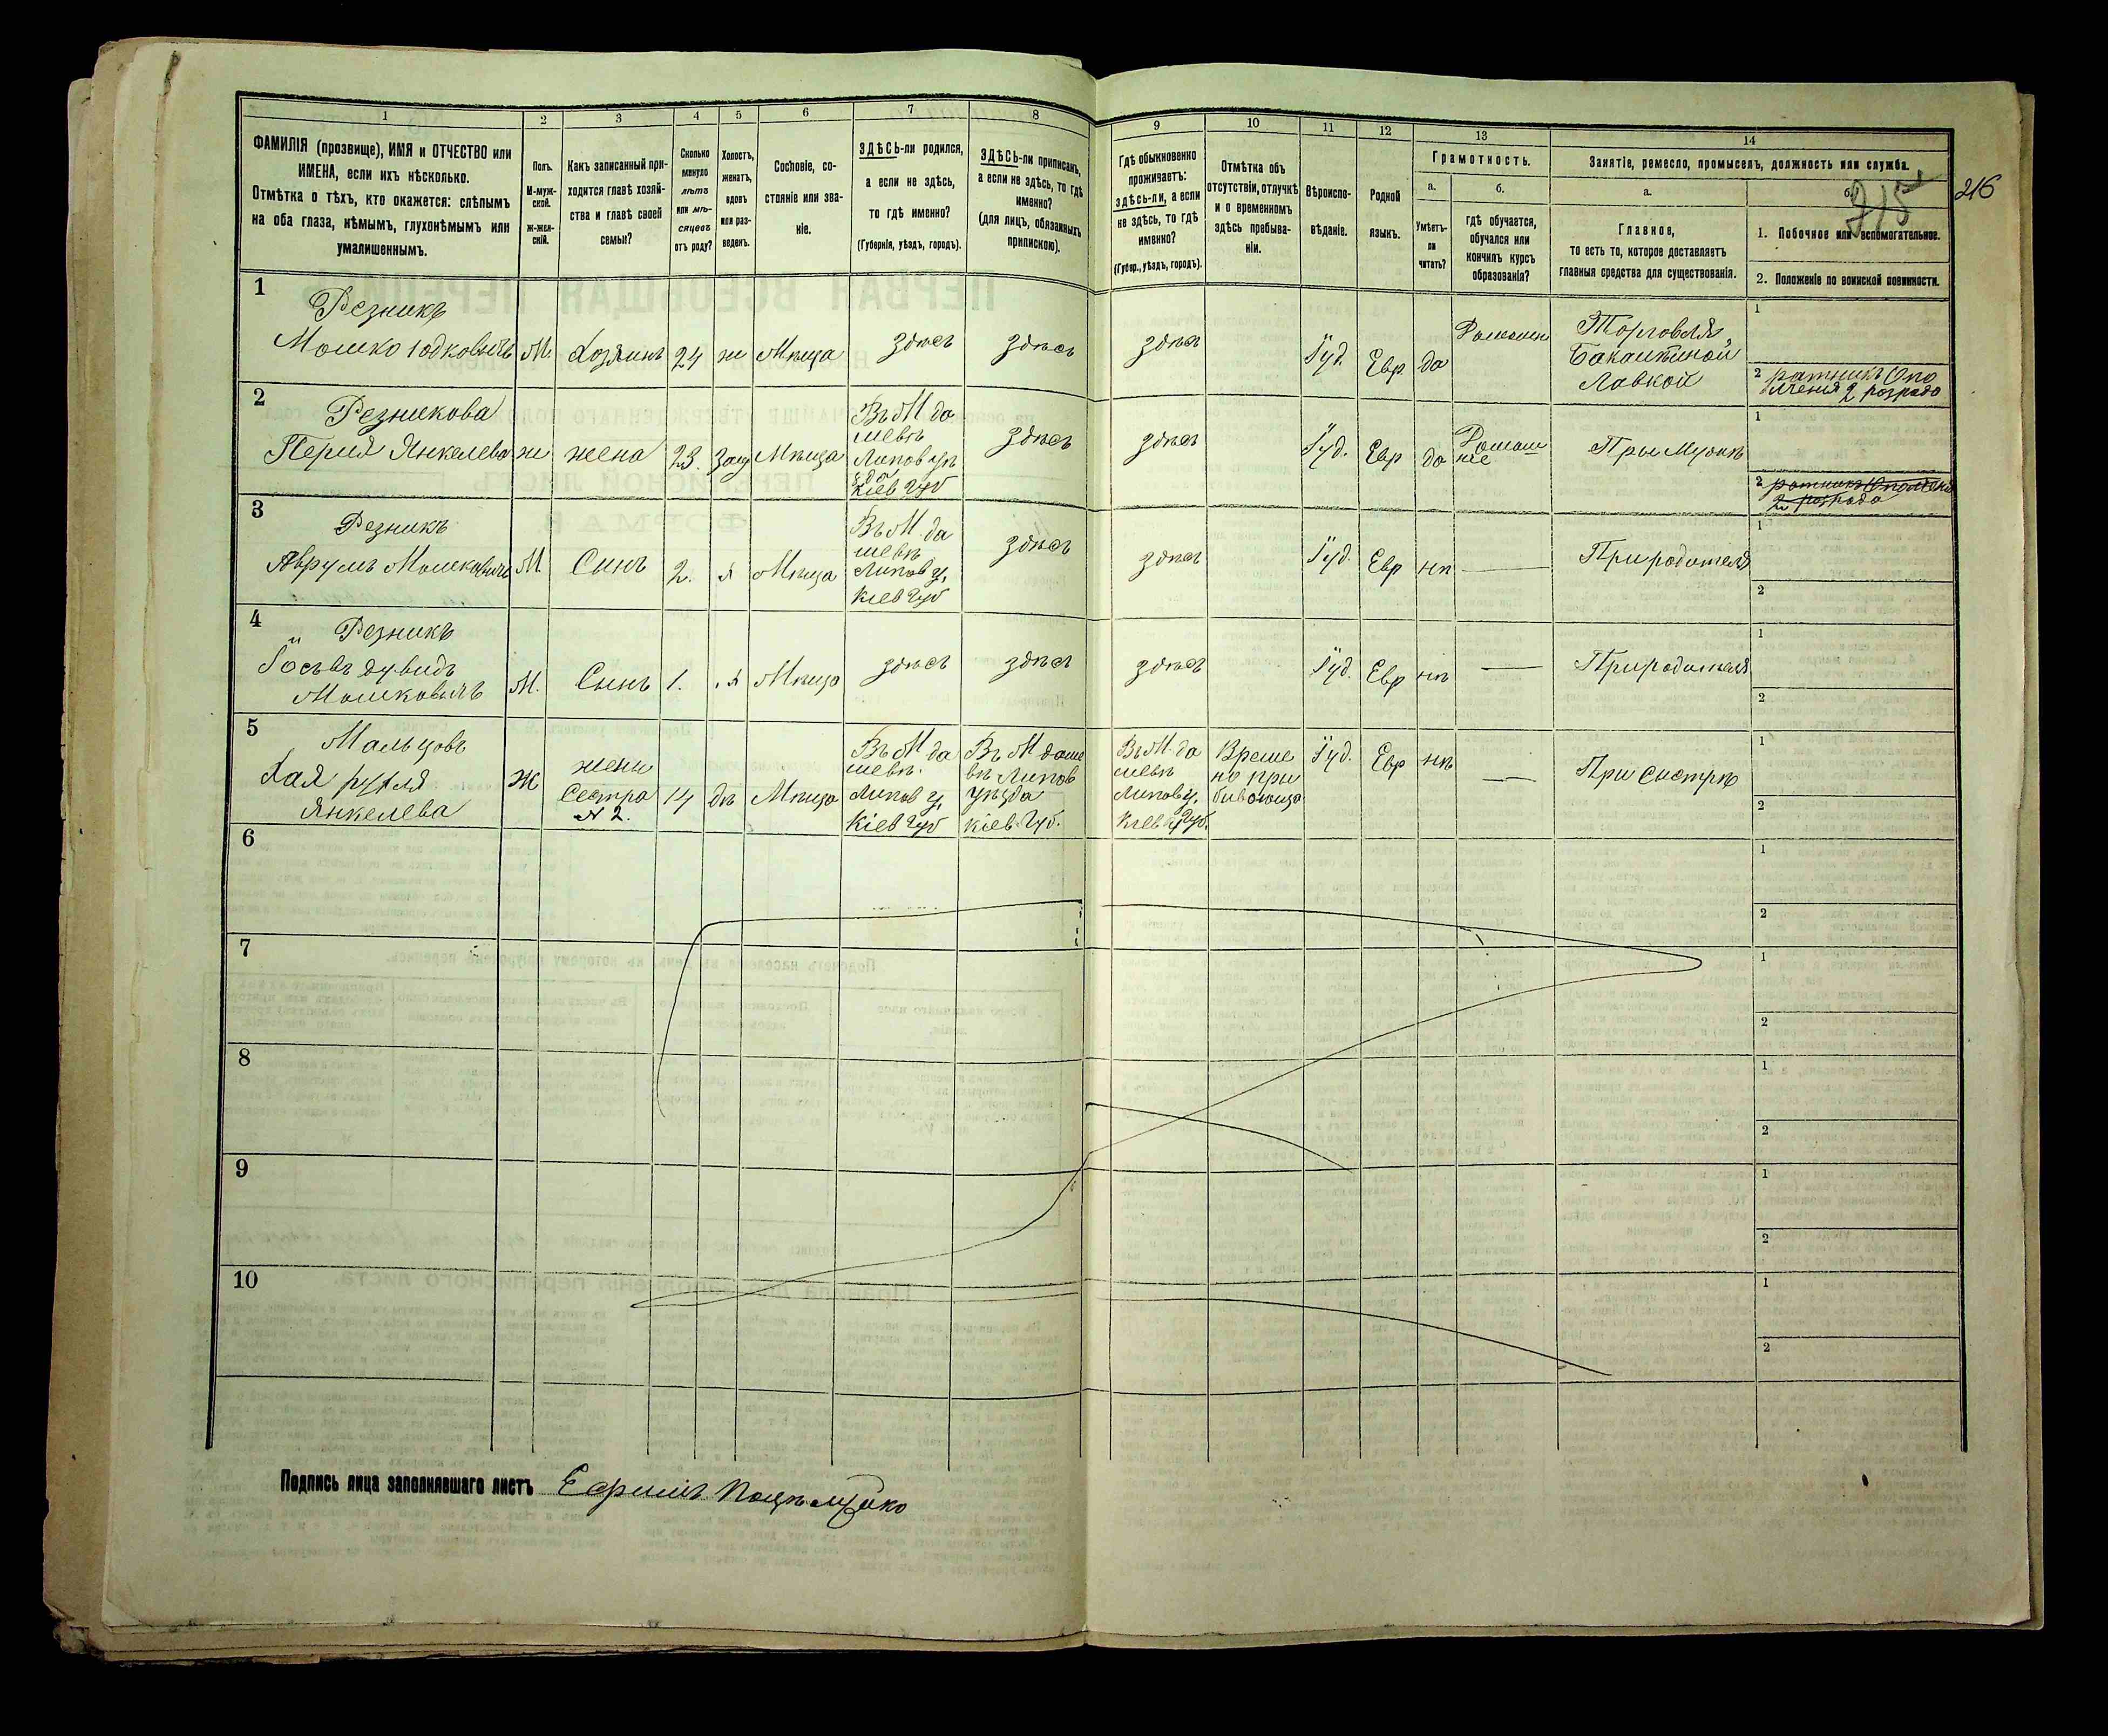 1 2 3 4 5 6 7 8 9 10 11 12 13 14
ФАМИЛІЯ (прозвище), ИМЯ и ОТЧЕСТВО или
ИМЕНА, если ихъ нѣсколько.
Отмѣтка о тѣхъ, кто окажется: слѣпымъ
на оба глаза, нѣмымъ, глухонѣмымъ или
умалишеннымъ.
Полъ.
М-муж-
ской.
Ж-жен-
скій.
Какъ записанный при-
ходится главѣ хозяй-
ства и главѣ своей
семьи?
Сколько
минуло
лѣтъ
или мѣ-
сяцевъ
отъ роду?
Холостъ,
женатъ,
вдовъ
или раз-
веденъ.
Сословіе, со-
стояніе или зва-
ніе.
ЗДѢСЬ-ли родился,
а если не здѣсь,
то гдѣ именно?
(Губернія, уѣздъ, городъ).
ЗДѢСЬ-ли приписанъ,
а если не здѣсь, то гдѣ
именно?
(для лицъ, обязанныхъ
припискою).
Гдѣ обыкновенно
проживаетъ:
здѣсь-ли, а если
не здѣсь, то гдѣ
именно?
(Губер., уѣздъ, городъ).
Отмѣтка объ
отсутствіи, отлучкѣ
и о временномъ
здѣсь пребыва-
ніи.
Вѣроиспо-
вѣданіе.
Родной
языкъ.
Грамотность.
а.
Умѣетъ-
ли
читать?
б.
гдѣ обучается,
обучался или
кончилъ курсъ
образованія?
Занятіе, ремесло, промыселъ, должность или служба.
а.
Главное,
то есть то, которое доставляетъ
главныя средства для существованія.
б.
1. Побочное или вспомогательное.
2. Положеніе по воинской повинности.
215
216
1
Резникъ
Мошко Іодковичъ М. Хозяинъ 24 ж Мѣща здѣсь здѣсь здѣсь Іуд. Евр да
Торговля
Бакалейной
Лавкой
1
2 ратникъ Опо
лченія 2 розрядо
2
Резникова
Перия Янкелева ж жена 23. Зам Мѣща
Въ М. да
шевѣ
Липов уѣ
зда
Кіев Губ
здѣсь здѣсь Іуд. Евр да
Домаш
нее
При Мужѣ
1
2 ратникъ Ополчен
2 розрядо
3
Резникъ
Аврумъ Мошковичъ М. Сынъ 2. х Мѣща
Въ М. да
шевѣ
Липов у,
Кіев Губ
здѣсь здѣсь Іуд. Евр нѣ
При родителя
1
2
4
Резникъ
Іосъвъ дувидъ
Мошковичъ М. Сынъ 1. х Мѣща здѣсь здѣсь здѣсь Іуд. Евр нѣ
При родителя
1
2
5
Мальцовъ
Хая рухля
Янкелева
Ж
жены
Сестра
N 2.
14 дѣ Мѣща
Въ М. да
шевѣ.
Липов у,
Кіев Губ
Въ М даше
вѣ Липов
уѣзда
Кіев. Губ.
Въ М. да
шевѣ
Липов у,
Кіев Губ.
Време
но при
бивающа
Іуд. Евр нѣ
При систрѣ
1
2
6
1
2
7
1
2
8
1
2
9
1
2
10
1
2
Подпись лица заполнявшаго листъ Ефимъ